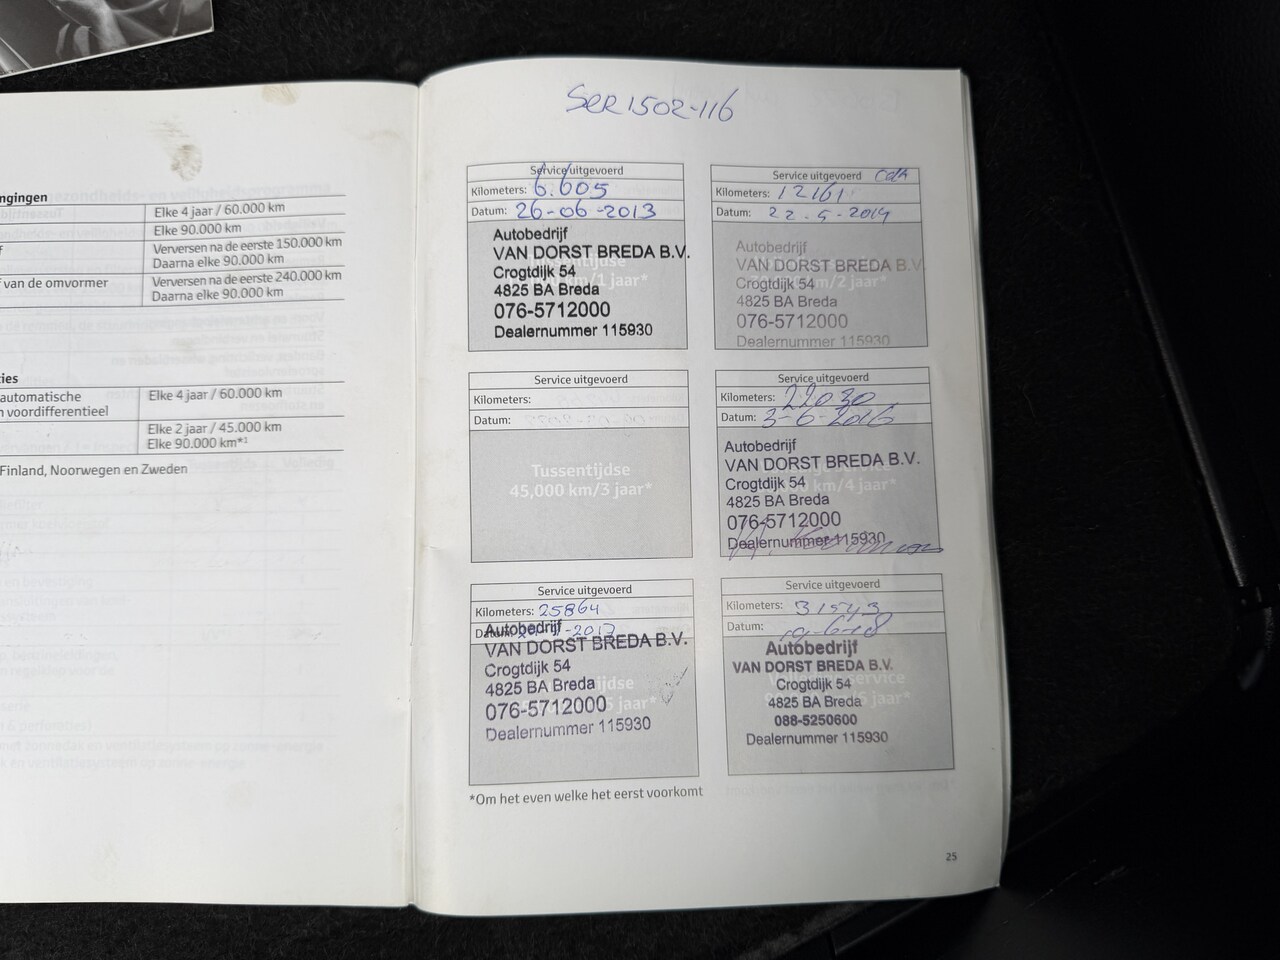 ngingen
Elke 4 jaar / 60.000 km
Elke 90.000 km
Verversen na de eerste 150.000 km
Daarna elke 90.000 km
f van de omvormer
Verversen na de eerste 240.000 km
Daarna elke 90.000 km
ties
automatische
n voordifferentieel
Elke 4 jaar / 60.000 km
Elke 2 jaar / 45.000 km
Elke 90.000 km*²
Finland, Noorwegen en Zweden
SER1502-116
Service uitgevoerd
Kilometers: 6.605
Datum: 26-06-2013
Autobedrijf
VAN DORST BREDA B.V.
Crogtdijk 54
4825 BA Breda
076-5712000
Dealernummer 115930
km/1 jaar*
Service uitgevoerd
Kilometers: 12161
Datum: 22-5-2014
Autobedrijf
VAN DORST BREDA B.V.
Crogtdijk 54
4825 BA Breda
076-5712000
Dealernummer 115930
km/2 jaar*
Service uitgevoerd
Kilometers:
Datum:
Tussentijdse
45,000 km/3 jaar*
Service uitgevoerd
Kilometers: 22030
Datum: 3-6-2016
Autobedrijf
VAN DORST BREDA B.V.
Crogtdijk 54
4825 BA Breda
076-5712000
Dealernummer 115930
km/4 jaar*
Service uitgevoerd
Kilometers: 25864
Datum: 2017
Autobedrijf
VAN DORST BREDA B.V.
Crogtdijk 54
4825 BA Breda
076-5712000
Dealernummer 115930
jaar*
Service uitgevoerd
Kilometers: 31543
Datum: 19-6-18
Autobedrijf
VAN DORST BREDA B.V.
Crogtdijk 54
4825 BA Breda
088-5250600
Dealernummer 115930
jaar*
*Om het even welke het eerst voorkomt
25